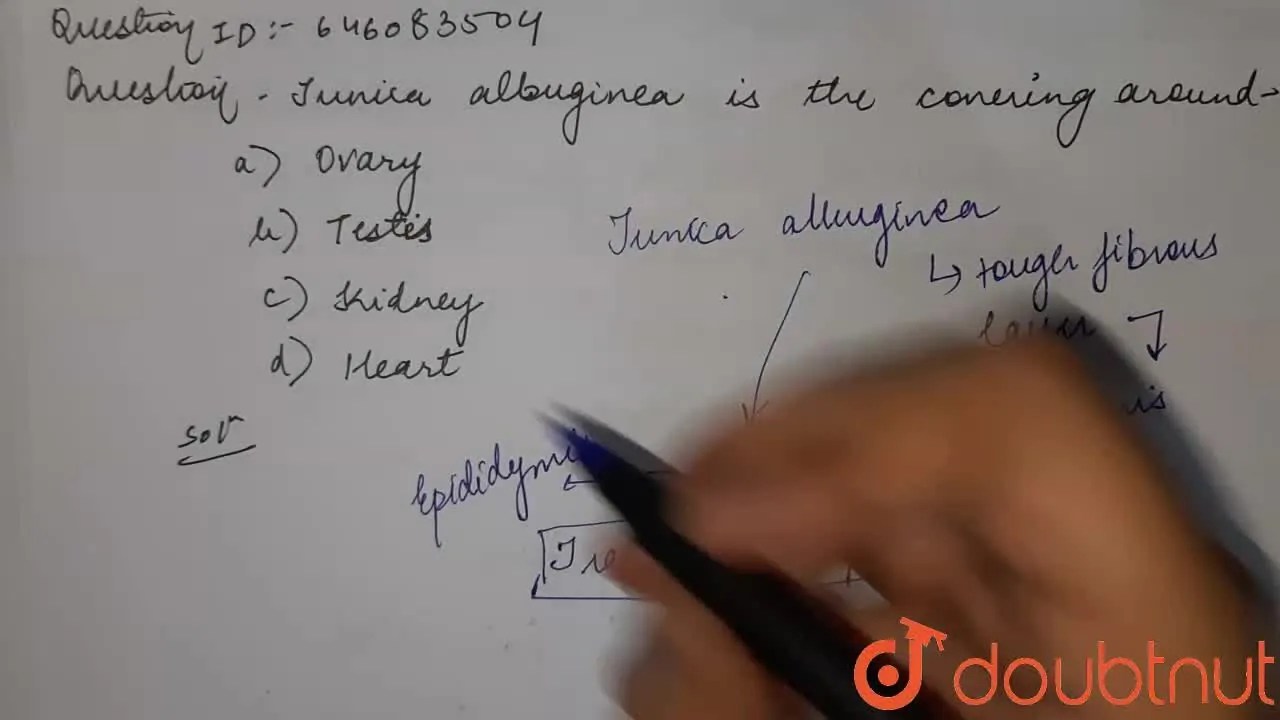 Question ID:- 646083504
Question - Tunica albuginea is the covering around-
a) Ovary
b) Testis
c) Kidney
d) Heart
Tunica albuginea
↳ tough fibrous
layer
is
Solⁿ
doubtnut